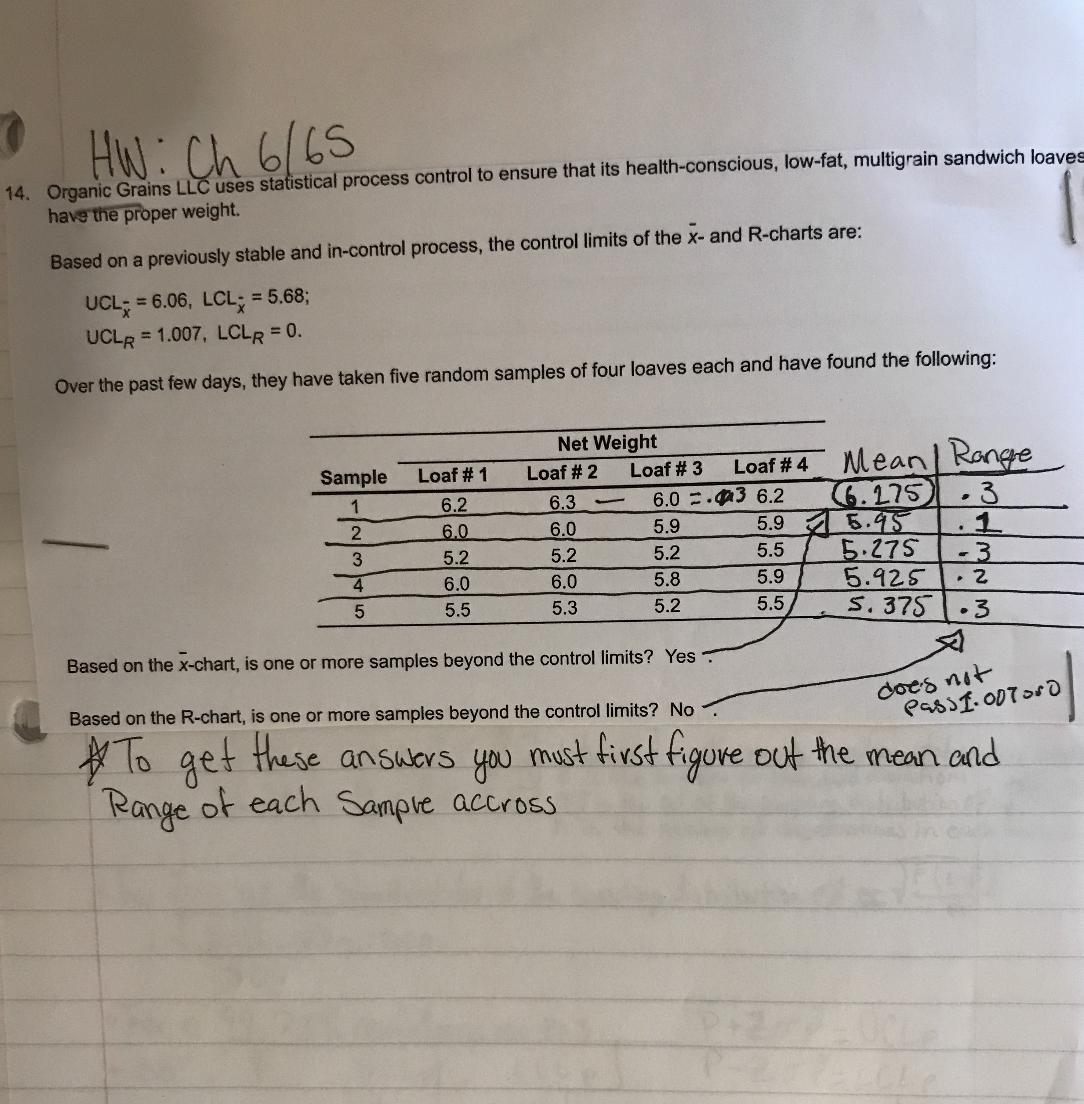 HW: Ch 6/6S
14. Organic Grains LLC uses statistical process control to ensure that its health-conscious, low-fat, multigrain sandwich loaves
have the proper weight.
Based on a previously stable and in-control process, the control limits of the x̄- and R-charts are:
UCLx̄ = 6.06, LCLx̄ = 5.68;
UCLR = 1.007, LCLR = 0.
Over the past few days, they have taken five random samples of four loaves each and have found the following:
Net Weight
Sample Loaf # 1 Loaf # 2 Loaf # 3 Loaf # 4 Mean Range
1 6.2 6.3 — 6.0 = .3 6.2 6.175 .3
2 6.0 6.0 5.9 5.9 5.95 .1
3 5.2 5.2 5.2 5.5 5.275 .3
4 6.0 6.0 5.8 5.9 5.925 .2
5 5.5 5.3 5.2 5.5 5.375 .3
Based on the x̄-chart, is one or more samples beyond the control limits? Yes .
does not
pass 1.007 or 0
Based on the R-chart, is one or more samples beyond the control limits? No .
To get these answers you must first figure out the mean and
Range of each Sample accross